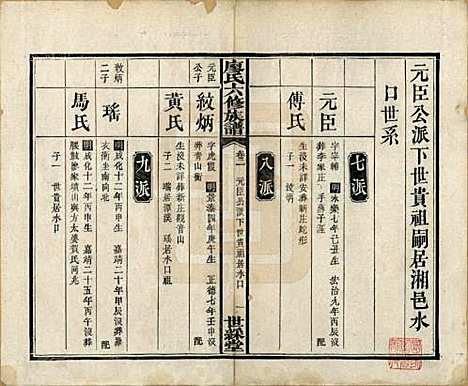 元臣公派下世貴祖嗣居湘邑水
口世系
七派
元臣
字宰輔 明永樂七年己丑生 弘治九年丙辰沒
葬李家庄
傅氏
生沒未詳安葬新庄蛇形
子一 紋炳
八派
廖氏六修族譜
卷一 元臣公派下世貴祖嗣居水口
世綵堂
元臣
公子
紋炳
字虎霞 明景泰四年庚午生 正德七年壬申沒
葬青山
黃氏
生沒未詳葬新庄觀音山
子二 瑤居潭溪 瑀居水口祖
九派
紋炳
二子
瑤
明成化十二年丙申生 嘉靖二十年甲辰沒葬
衣衝圭南向北 配
馬氏
明成化十二年丙申生 嘉靖二十五年丙午沒葬
子一 世貴居水口 配